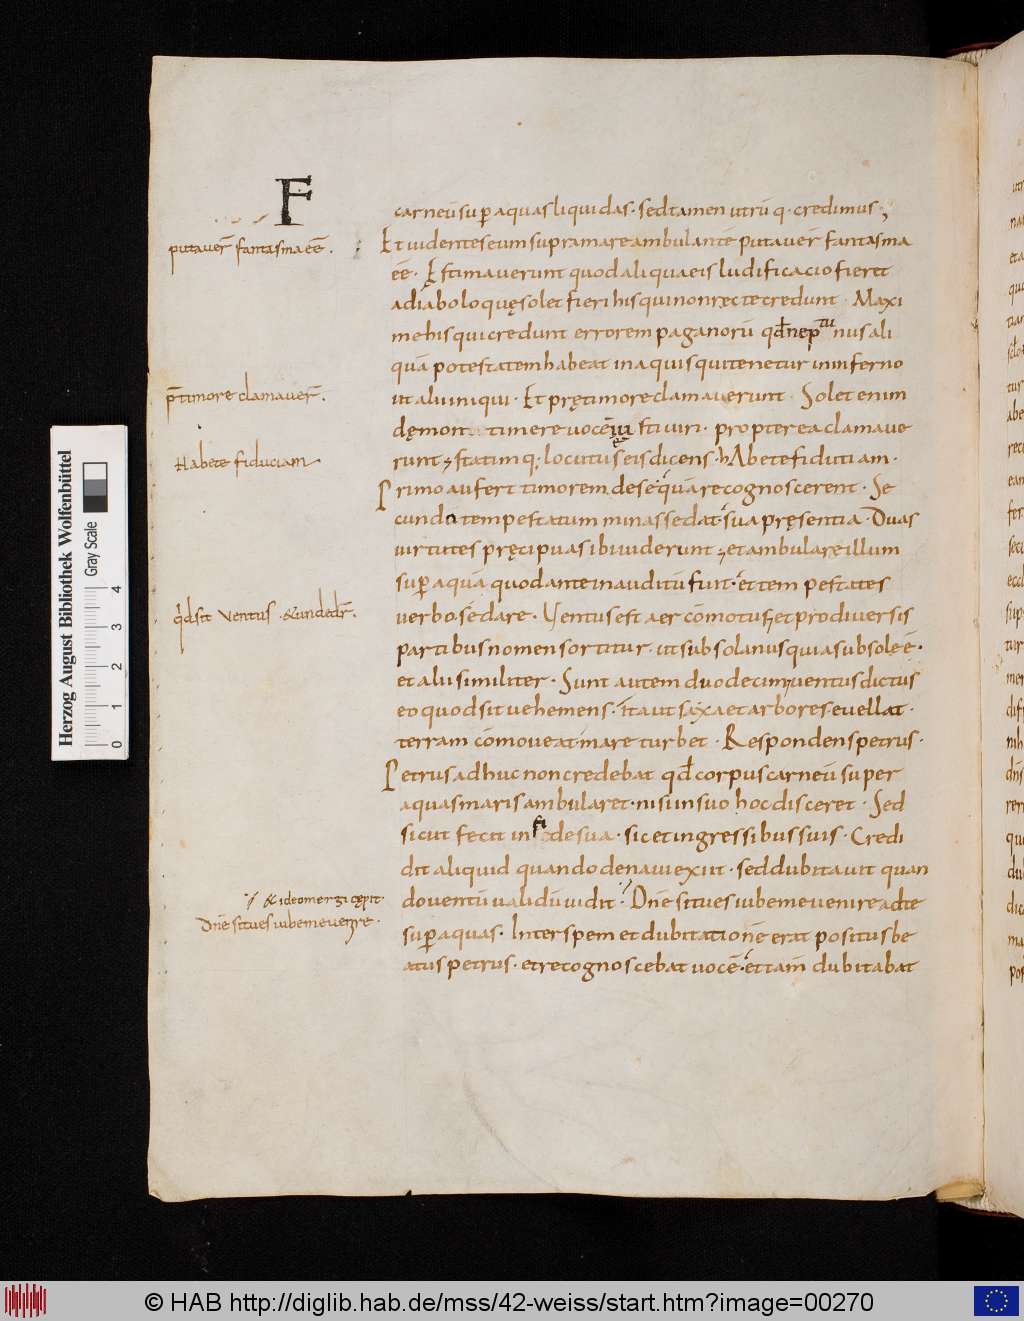 F
carneū sup aquas liquidas· sed tamen utrū q· credimus;
putaver̄ fantasma eē·
Et videntes eum supra mare ambulantē putaver̄ fantasma
eē· Ęstimaverunt quod aliqua eis ludificacio fieret
a diabolo quę solet fieri his qui non recte credunt· Maxi
me his qui credunt errorem paganorū qđ neptunus ali
quā potestatem habeat in aquis qui tenetur in inferno
p̄ timore clamaver̄·
ut alii iniqui· Et prę timore clamaverunt· Solet enim
dęmon timere vocē sc̄i viri· propterea clamave
Habete fiduciam
runt; statimq; locutus eis dicens· hAbete fidutiam·
Primo aufert timorem de se quā recognoscerent· Se
cundo tempestatum minas sedat sua pręsentia· Duas
virtutes pręcipuas ibi viderunt; et ambulare illum
sup aquā quod ante inauditū fuit· et tempestates
qđ sit ventus· & unde dr̄·
verbo sedare· Ventus est aer cōmotus; et pro diversis
partibus nomen sortitur· ut subsolanus quia sub sole ē·
et alii similiter· Sunt autem duodecim venti dictus
eo quod sit vehemens· ita ut saxa et arbores evellat·
terram cōmoveat mare turbet· Respondens petrus·
Petrus adhuc non credebat qđ corpus carneū super
aquas maris ambularet· nisi in suo hoc disceret· Sed
sicut fecit in fide sua· sic et ingressibus suis· Credi
dit aliquid quando de navi exiit· sed dubitavit quan
& ideo mergi cępit
do ventū validū vidit· Dn̄e si tu es iube me venire ad te
Dn̄e si tu es iube me venire·
sup aquas· Inter spem et dubitationē erat positus be
atus petrus· et recognoscebat vocē· et tam̄ dubitabat
Herzog August Bibliothek Wolfenbüttel
Gray Scale
0 1 2 3 4
© HAB http://diglib.hab.de/mss/42-weiss/start.htm?image=00270